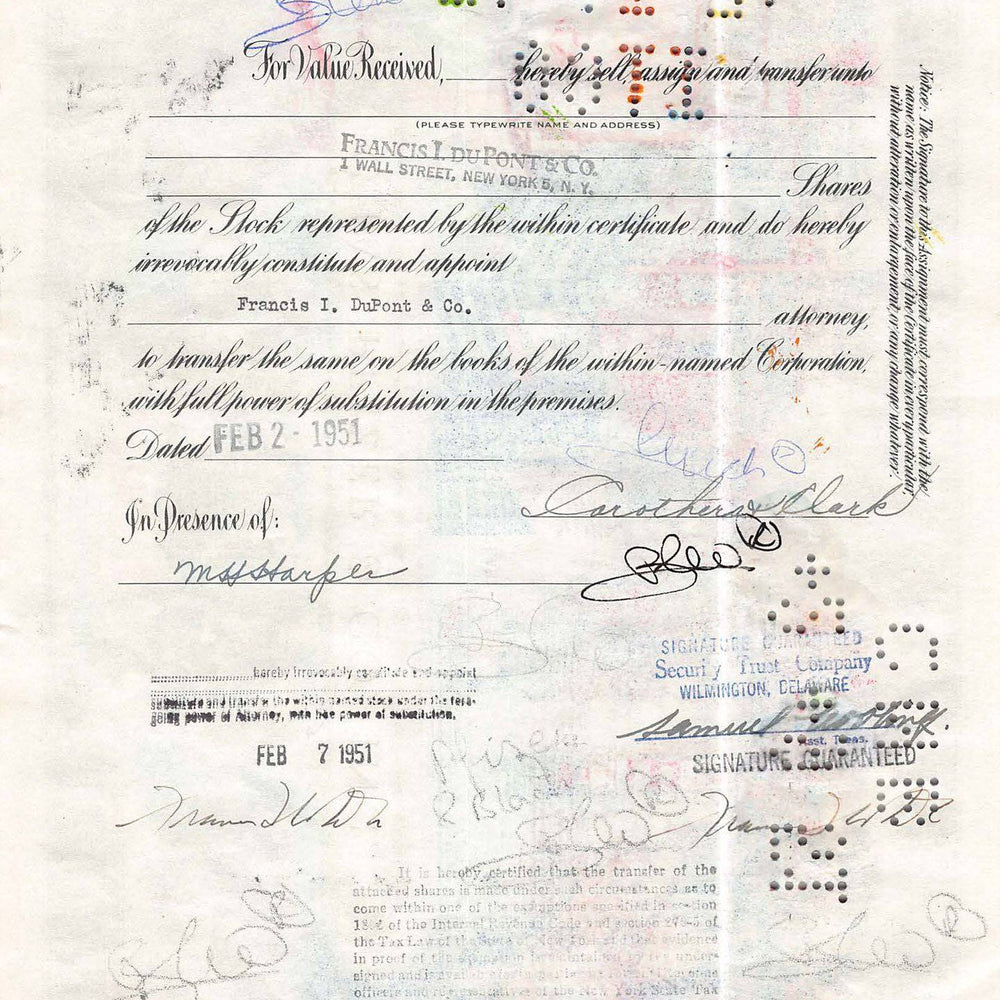 For Value Received, hereby sell, assign and transfer unto
(PLEASE TYPEWRITE NAME AND ADDRESS)
FRANCIS I. DU PONT & CO.
1 WALL STREET, NEW YORK 5, N. Y.
Shares
of the Stock represented by the within certificate and do hereby
irrevocably constitute and appoint
Francis I. DuPont & Co.
attorney,
to transfer the same on the books of the within-named Corporation,
with full power of substitution in the premises.
Dated FEB 2 - 1951
Notice: The Signature to this Assignment must correspond with the
name as written upon the face of the Certificate in every particular,
without alteration or enlargement, or any change whatever.
Clark
In Presence of:
Harper
SIGNATURE GUARANTEED
Security Trust Company
WILMINGTON, DELAWARE
Samuel
Asst. Treas.
SIGNATURE GUARANTEED
hereby irrevocably constitute and appoint
substitute and transfer the within named stock under the fore-
going power of Attorney, with like power of substitution.
FEB 7 1951
It is hereby certified that the transfer of the
attached shares is made under such circumstances as to
come within one of the exemptions specified in section
of the Internal Revenue Code and section of
the Tax Law of the State of New York and that evidence
in proof of the exemption is maintained by the under-
signed and is available
officers and representatives of the New York State Tax